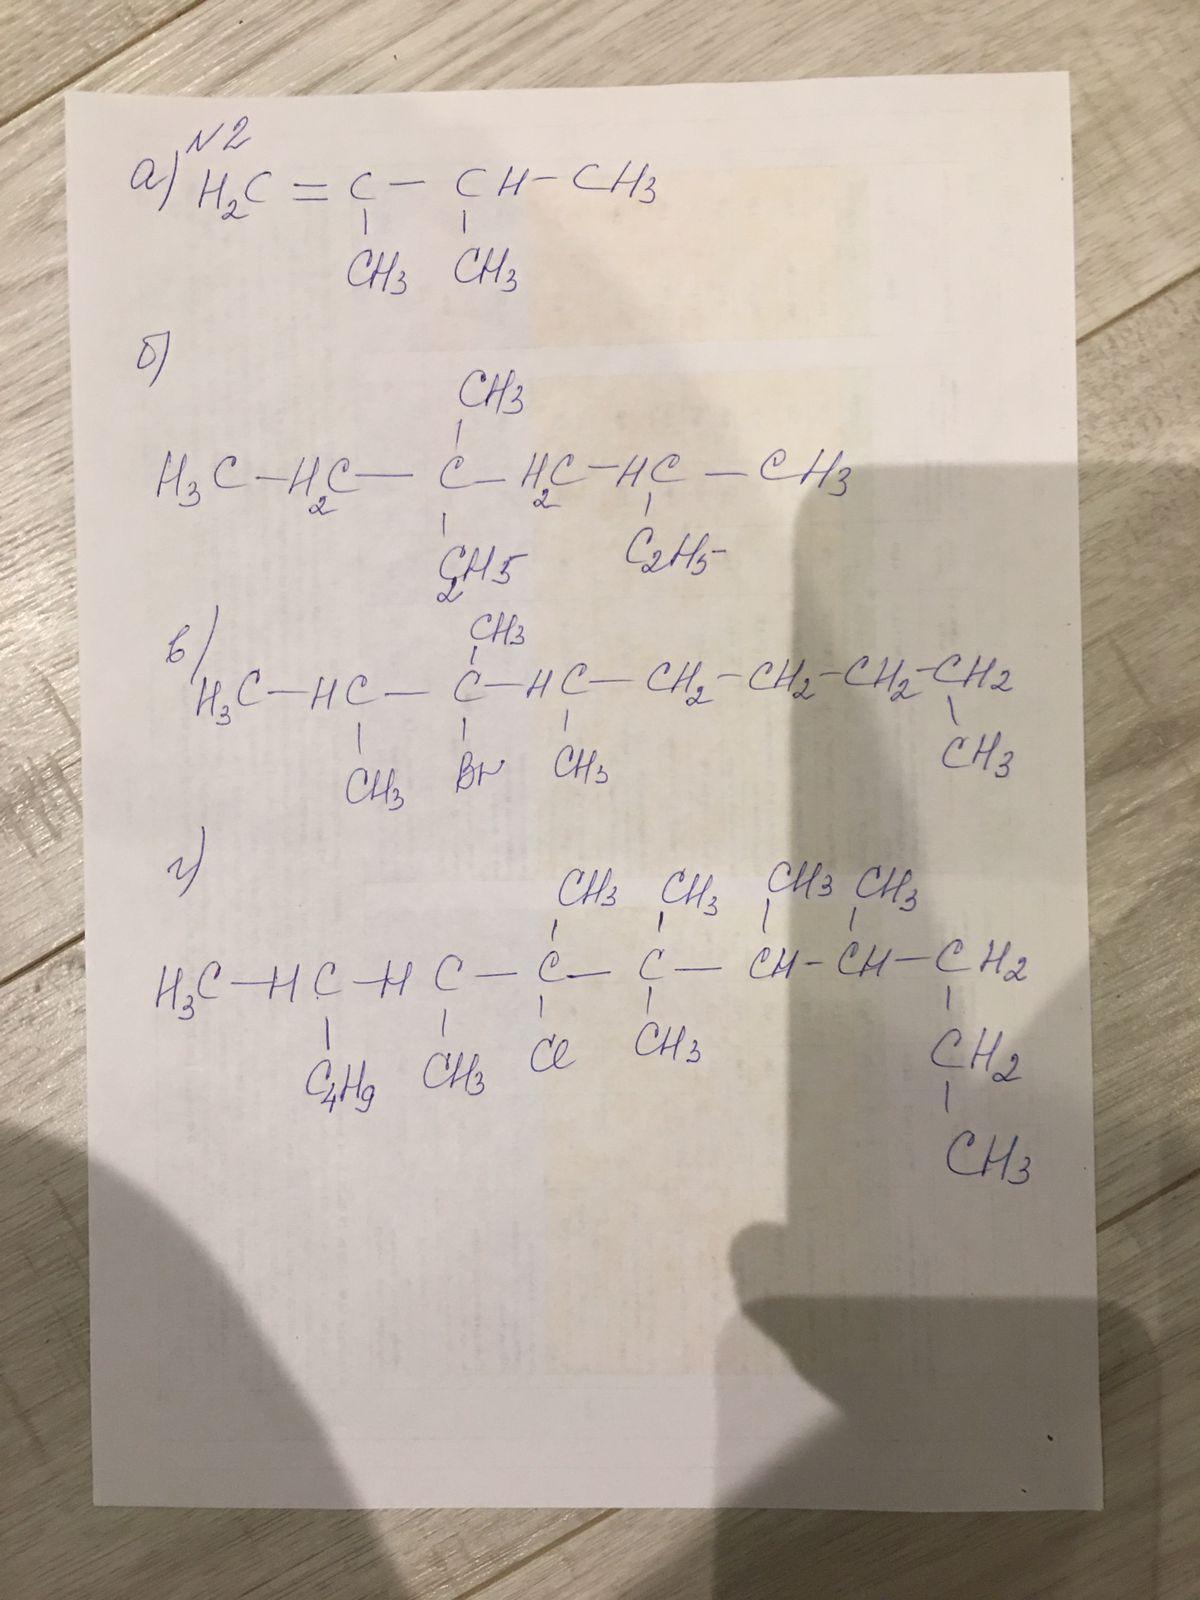 N2
а) H2C = C — CH – CH3
CH3 CH3
б)
CH3
H3C – H2C — C — H2C – HC — CH3
C2H5 C2H5
в)
CH3
H3C — HC — C — HC — CH2 – CH2 – CH2 – CH2
CH3 Br CH3 CH3
г)
CH3 CH3 CH3 CH3
H3C — HC — HC — C — C — CH – CH — CH2
C4H9 CH3 Cl CH3 CH2
CH3